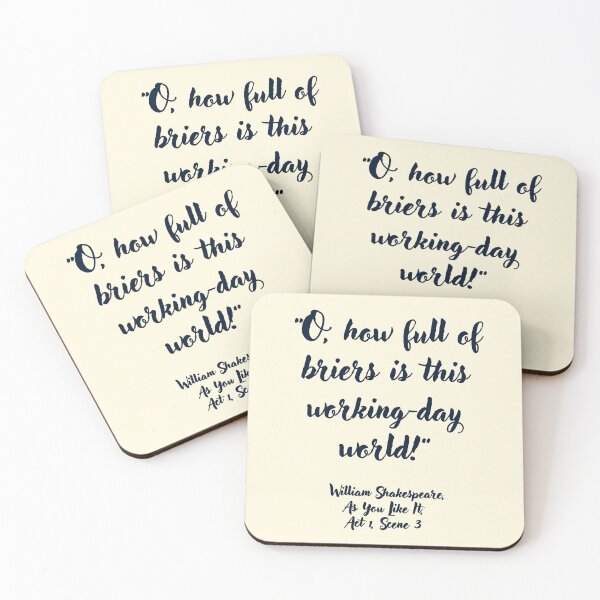 "O, how full of
briers is this
working-day
"O, how full of
briers is this
working-day
world!"
"O, how full of
briers is this
working-day
world!"
William
As You Like
Act 1,
"O, how full of
briers is this
working-day
world!"
William Shakespeare,
As You Like It,
Act 1, Scene 3